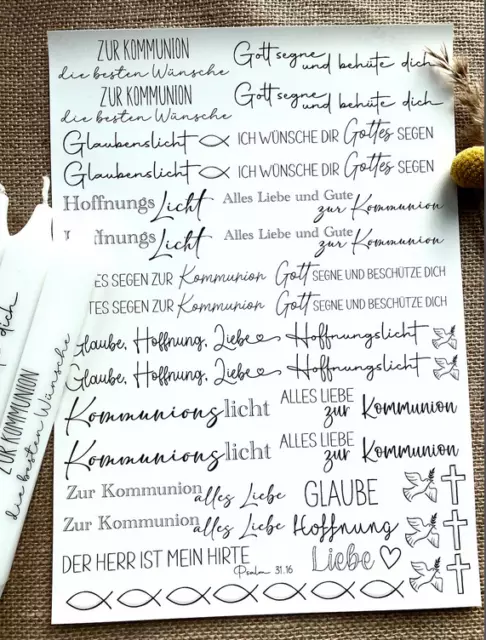 ZUR KOMMUNION
die besten Wünsche
Gott segne und behüte dich
ZUR KOMMUNION
die besten Wünsche
Gott segne und behüte dich
Glaubenslicht
ICH WÜNSCHE DIR Gottes SEGEN
Glaubenslicht
ICH WÜNSCHE DIR Gottes SEGEN
Hoffnungs Licht
Alles Liebe und Gute
zur Kommunion
ffnungs Licht
Alles Liebe und Gute
zur Kommunion
ES SEGEN ZUR Kommunion
Gott SEGNE UND BESCHÜTZE DICH
TES SEGEN ZUR Kommunion
Gott SEGNE UND BESCHÜTZE DICH
Glaube, Hoffnung, Liebe
Hoffnungslicht
Glaube, Hoffnung, Liebe
Hoffnungslicht
Kommunionslicht
ALLES LIEBE
zur Kommunion
Kommunionslicht
ALLES LIEBE
zur Kommunion
Zur Kommunion
alles Liebe
GLAUBE
Zur Kommunion
alles Liebe
Hoffnung
DER HERR IST MEIN HIRTE
Psalm 31.16
Liebe
dich
ZUR KOMMUNION
die besten Wünsche